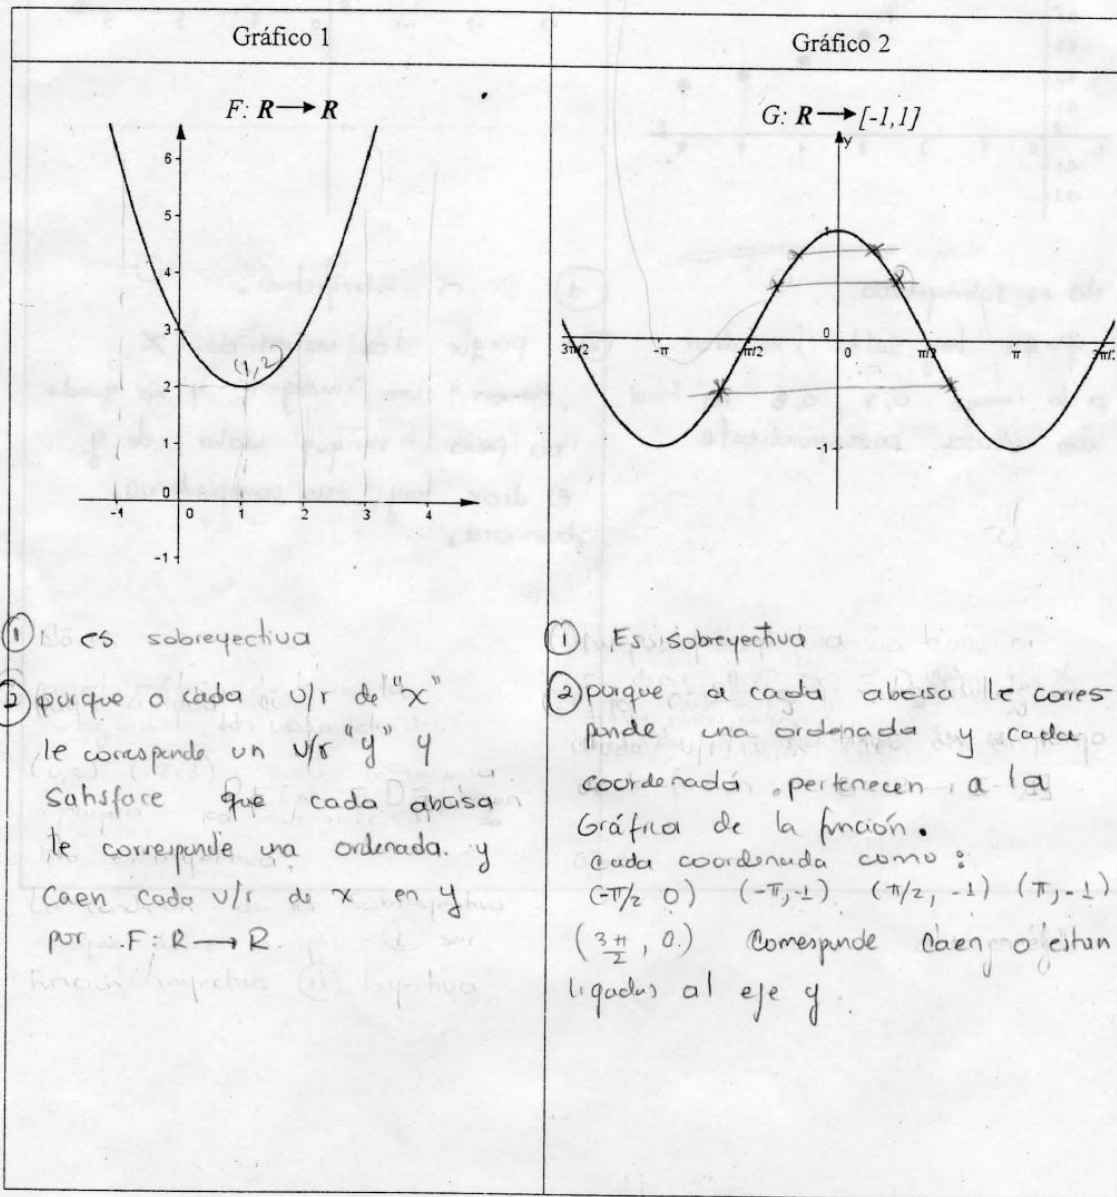 Gráfico 1
F: R → R
6
5
4
3
2
1
0
-1
-1 0 1 2 3 4
(1,2)
① es sobreyectiva
② porque a cada v/r de "x"
le corresponde un v/r "y" y
Satisface que cada abcisa
le corresponde una ordenada. y
Caen cada v/r de x en y
por F: R → R
Gráfico 2
G: R → [-1,1]
y
1
0
-1
3π/2 -π π/2 0 π/2 π 3π/2
① Es sobreyectiva
② porque a cada abcisa le corres
ponde una ordenada y cada
coordenada pertenecen a la
Gráfica de la función.
cada coordenada como:
(-π/2 0) (-π,-1) (π/2, -1) (π,-1)
(3π/2, 0.) Corresponde caen o estan
ligadas al eje y.